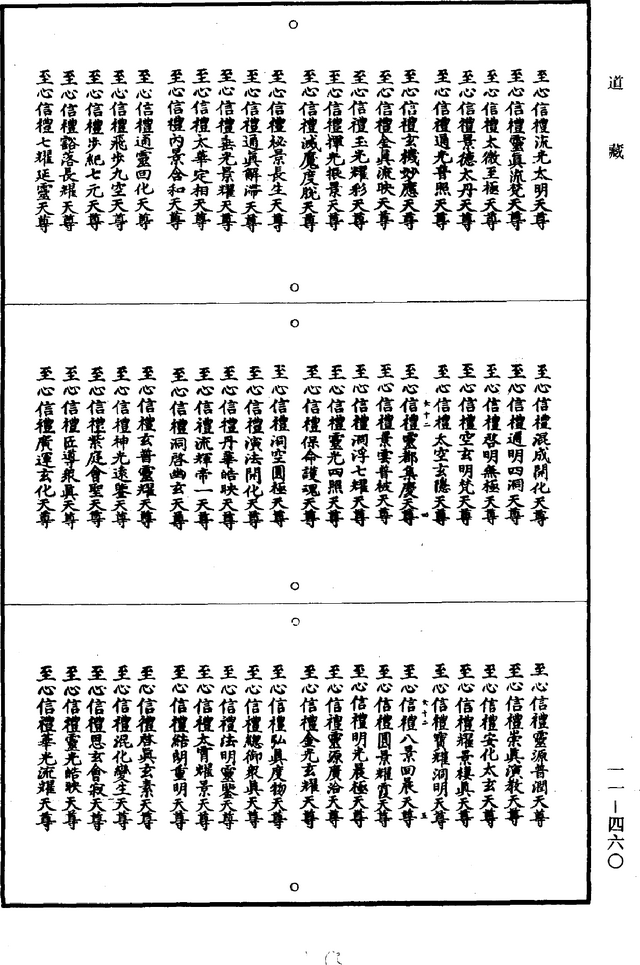 道藏
至心信禮流光太明天尊
至心信禮靈真流梵天尊
至心信禮太微至極天尊
至心信禮景德太丹天尊
至心信禮過光普照天尊
至心信禮玄機妙應天尊
至心信禮金真流映天尊
至心信禮玉光耀彩天尊
至心信禮禪光振景天尊
至心信禮滅魔度脫天尊
至心信禮祕景長生天尊
至心信禮通真解滯天尊
至心信禮垂光景耀天尊
至心信禮太華定相天尊
至心信禮內景含和天尊
至心信禮通靈回化天尊
至心信禮飛步九空天尊
至心信禮步紀七元天尊
至心信禮豁落長耀天尊
至心信禮七耀延靈天尊
至心信禮混成開化天尊
至心信禮通明四洞天尊
至心信禮啓明無極天尊
至心信禮空玄明梵天尊
至心信禮太空玄隱天尊
女十二 四
至心信禮靈都集慶天尊
至心信禮景雲普被天尊
至心信禮洞浮七耀天尊
至心信禮靈光四照天尊
至心信禮保命護魂天尊
至心信禮洞空圓極天尊
至心信禮演法開化天尊
至心信禮丹華皓映天尊
至心信禮流輝帝一天尊
至心信禮洞啓幽玄天尊
至心信禮玄普靈耀天尊
至心信禮神光遠鑒天尊
至心信禮紫庭會聖天尊
至心信禮匠導衆真天尊
至心信禮廣運玄化天尊
至心信禮靈源普潤天尊
至心信禮崇真演教天尊
至心信禮安化太玄天尊
至心信禮耀景樓真天尊
至心信禮寶耀洞明天尊
女十二 五
至心信禮八景回晨天尊
至心信禮圓景耀霞天尊
至心信禮明光晨極天尊
至心信禮靈源廣洽天尊
至心信禮金光玄耀天尊
至心信禮弘真度物天尊
至心信禮總御衆真天尊
至心信禮法明靈鑒天尊
至心信禮太霄耀景天尊
至心信禮結朗重明天尊
至心信禮啓真玄素天尊
至心信禮混化變生天尊
至心信禮思玄會寂天尊
至心信禮靈光皓映天尊
至心信禮華光流耀天尊
一一－四六〇